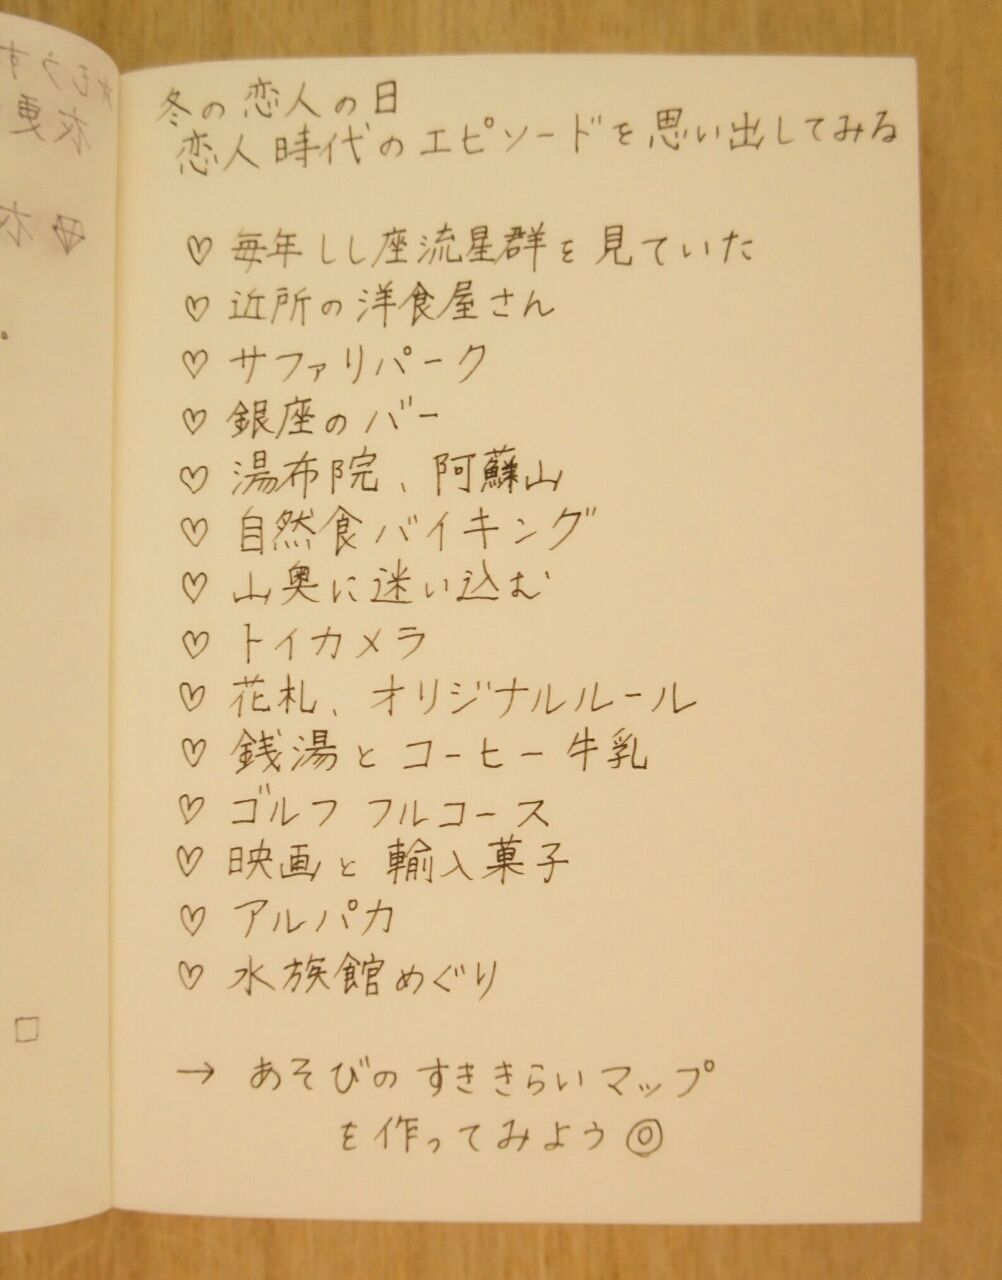 冬の恋人の日
恋人時代のエピソードを思い出してみる
♡ 毎年しし座流星群を見ていた
♡ 近所の洋食屋さん
♡ サファリパーク
♡ 銀座のバー
♡ 湯布院、阿蘇山
♡ 自然食バイキング
♡ 山奥に迷い込む
♡ トイカメラ
♡ 花札、オリジナルルール
♡ 銭湯とコーヒー牛乳
♡ ゴルフフルコース
♡ 映画と輸入菓子
♡ アルパカ
♡ 水族館めぐり
→ あそびのすききらいマップ
を作ってみよう◎